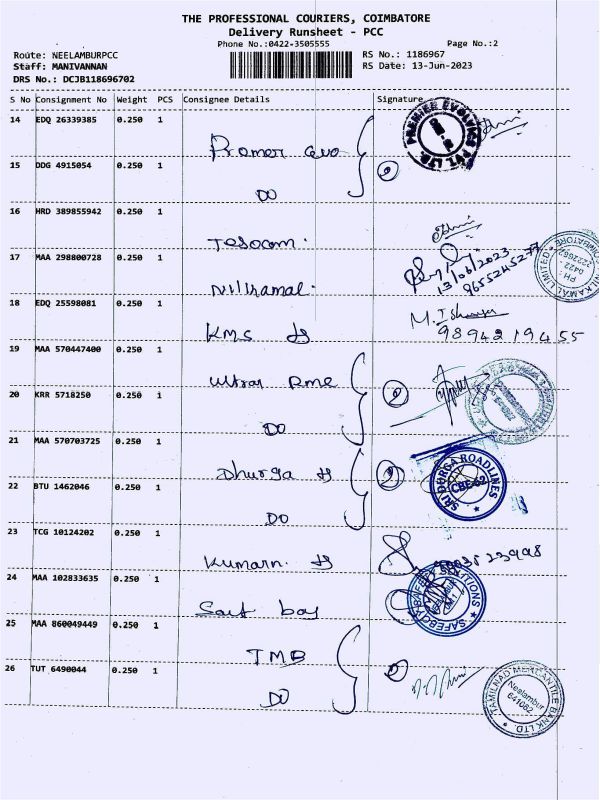 THE PROFESSIONAL COURIERS, COIMBATORE
Delivery Runsheet - PCC
Phone No.:0422-3505555 Page No.:2
Route: NEELAMBURPCC RS No.: 1186967
Staff: MANIVANNAN RS Date: 13-Jun-2023
DRS No.: DCJB118696702
S No Consignment No Weight PCS Consignee Details Signature
14 EDQ 26339385 0.250 1
PREMIER EVOLVICS PVT. LTD.
15 DDG 4915054 0.250 1
DO
2
16 HRD 389855942 0.250 1
17 MAA 298800728 0.250 1
13/06/2023
9655245277
18 EDQ 25598081 0.250 1
KMS
9894219455
19 MAA 570447400 0.250 1
Ultra RMC
20 KRR 5718250 0.250 1
DO
2
21 MAA 570703725 0.250 1
Dhurga
2
SRI DURGA ROADLINES
CBE-62
22 BTU 1462046 0.250 1
DO
23 TCG 10124202 0.250 1
Kumarn
24 MAA 102833635 0.250 1
Saif boy
25 MAA 860049449 0.250 1
TMB
26 TUT 6490044 0.250 1
DO
2
TAMILNAD MERCANTILE BANK LTD.
Neelambur
641062